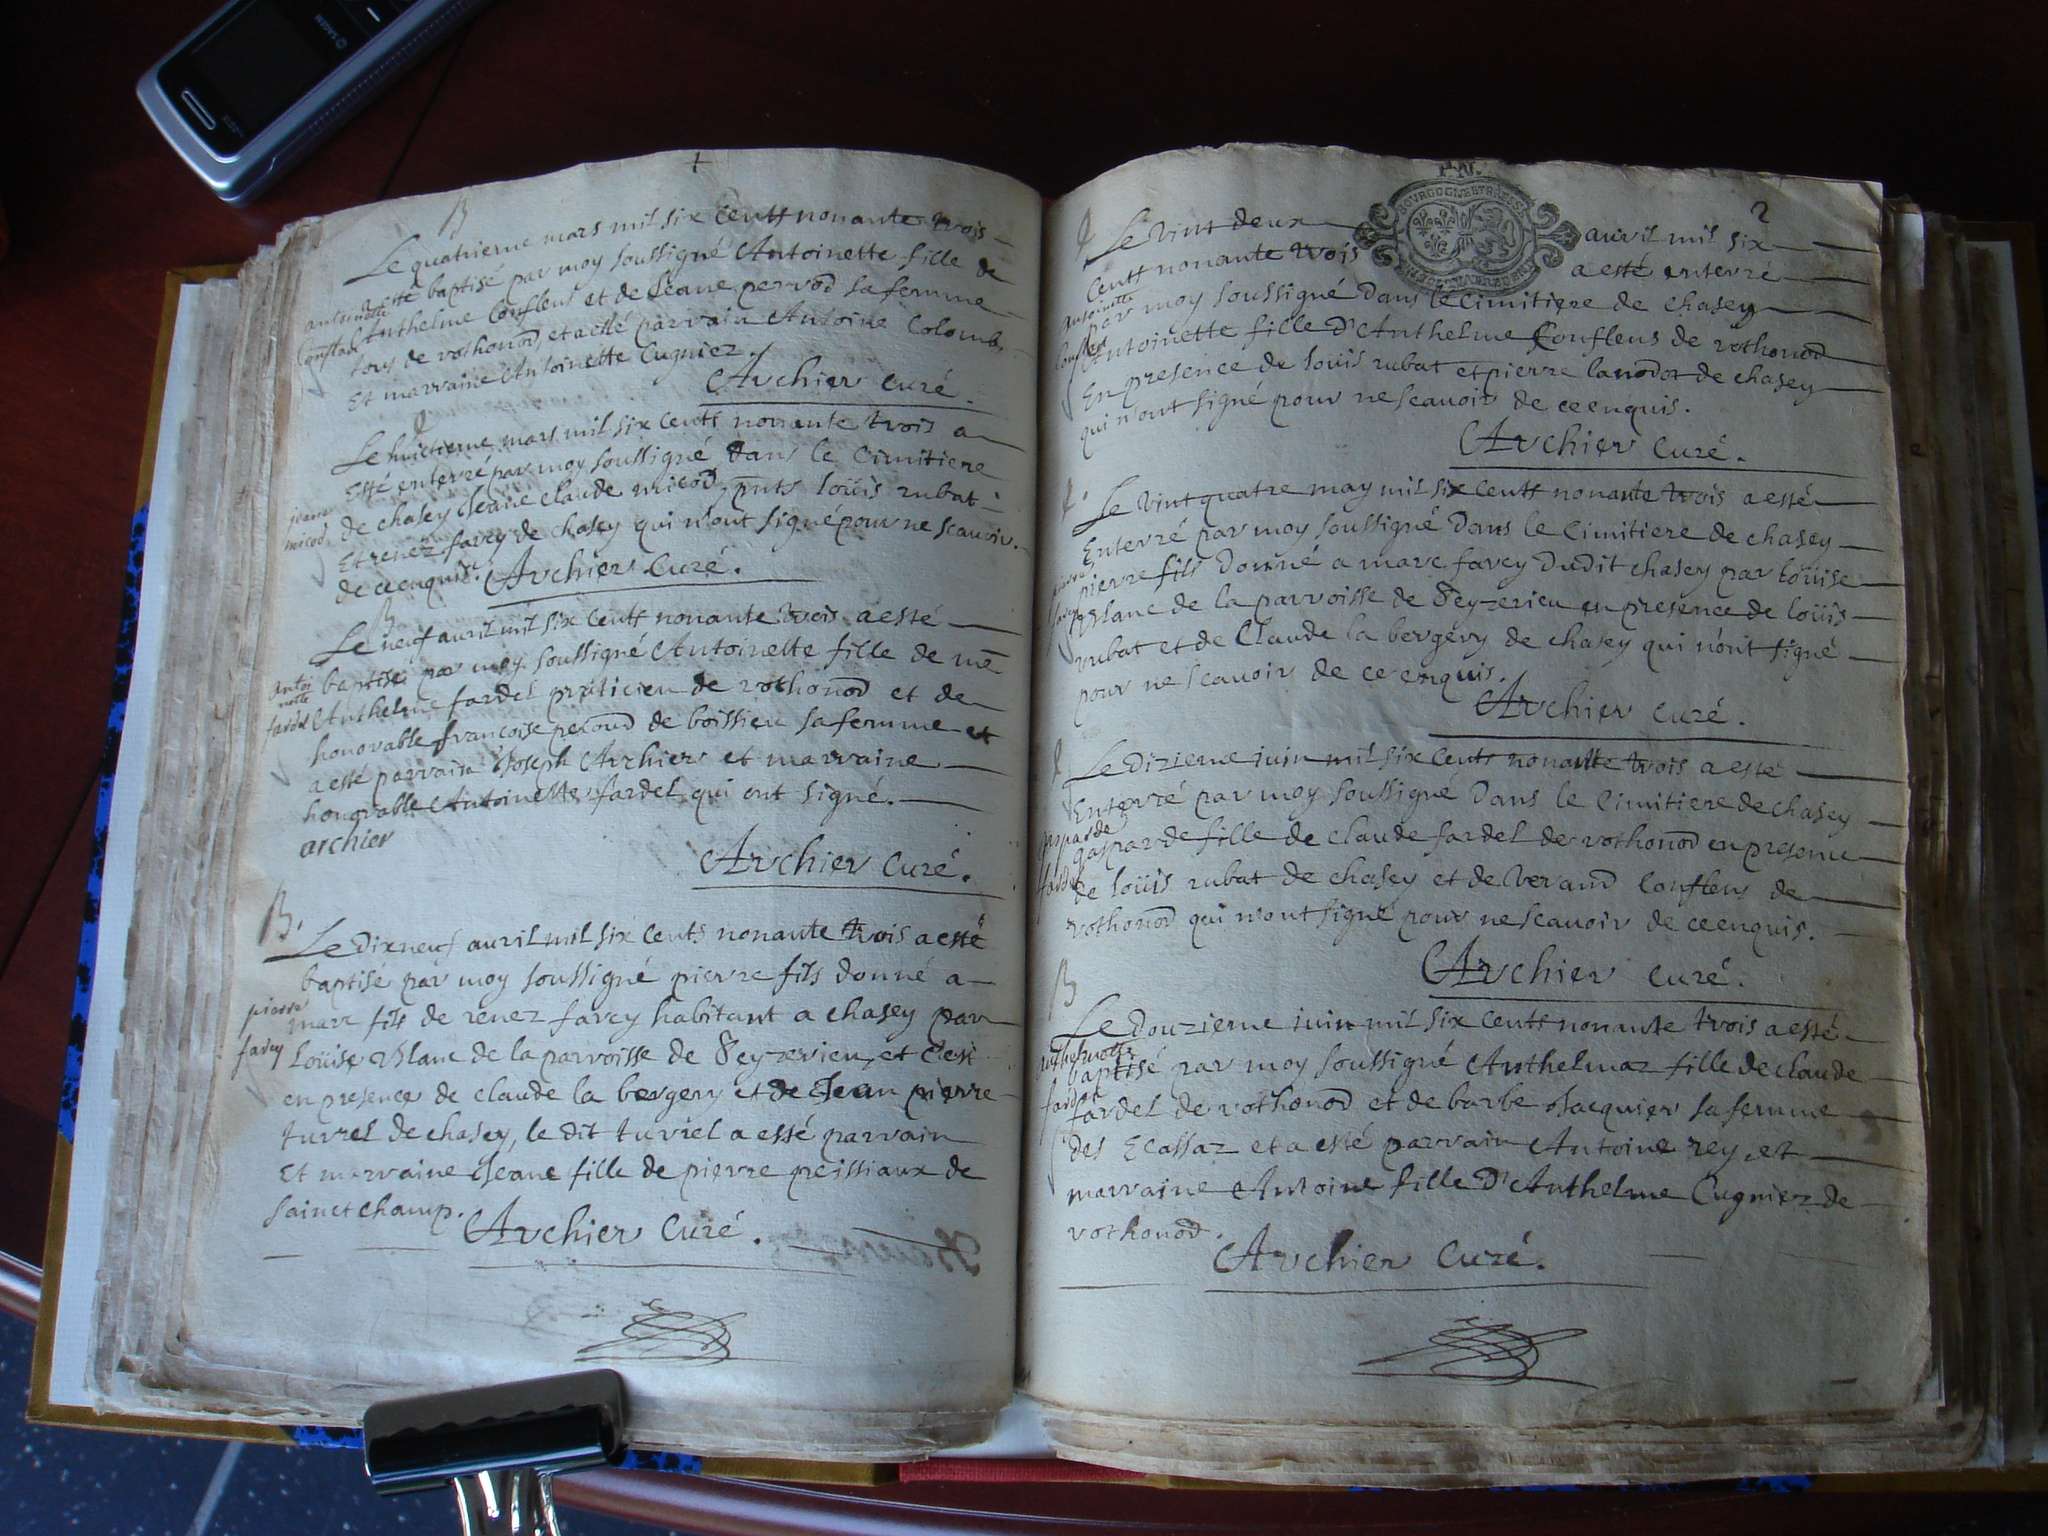 B
Le quatrieme mars mil six cents nonante trois
a esté baptisé par moy soussigné Antoinette fille de
antoinette
Anthelme Conflens et de Jeane pervod sa femme
Conflans
tous de vothonod, et a esté parrain Antoine Colomb,
Et marraine Antoinette Cugniez.
Archier Curé.
Le huictieme mars mil six cents nonante trois a
Esté enterré par moy soussigné dans le Cimitiere
jeane
micod
de chasey Jeane Claude micod, pnts Loüis rubat
Et renez favey de chasey qui n'ont signé pour ne scavoir
de ce enquis. Archier Curé.
B
Le neuf avril mil six cents nonante trois a esté
baptisé par moy soussigné Antoinette fille de me
antoi
nette
fardel
Anthelme fardel praticien de vothonod et de
honorable francoise perond de boissieu sa femme et
a esté parrain Joseph Archier et marraine
honorable Antoinette fardel qui ont signé.
archier
Archier Curé.
B.
Le dixneuf avril mil six cents nonante trois a esté
baptisé par moy soussigné pierre fils donné a
pierre
marc fils de renez favey habitant a chasey par
favey
Loüise Blanc de la parroisse de Seyzerieu, et c'est
en presence de claude la bergery et de Jean pierre
turrel de chasey, le dit turrel a esté parrain
Et marraine Jeane fille de pierre preissiaux de
sainct champ.
Archier Curé.
2
Le vint deux avril mil six
BOURGOGNE ET BRESSE
Cents nonante trois a esté enterré
antoinette
par moy soussigné dans le Cimitiere de chasey
Conflans
Antoinette fille d'Anthelme Conflens de vothonod
En presence de Louis rubat et pierre lanodot de chasey
qui n'ont signé pour ne scavoir de ce enquis.
Archier Curé.
Le vint quatre may mil six cents nonante trois a esté
Enterré par moy soussigné dans le Cimitiere de chasey
pierre
pierre fils donné a marc favey dudit chasey par Loüise
favey
Blanc de la parroisse de Seyzerieu en presence de Loüis
rubat et de Claude la bergery de chasey qui n'ont signé
pour ne scavoir de ce enquis.
Archier Curé.
Le dizieme juin mil six cents nonante trois a esté
Enterré par moy soussigné dans le Cimitiere de chasey
gasparde
gasparde fille de claude fardel de vothonod en presence
fardel
de Loüis rubat de chasey et de Verand Conflens de
vothonod qui n'ont signé pour ne scavoir de ce enquis.
Archier Curé.
B
Le douzieme juin mil six cents nonante trois a esté
anthelmette
baptisé par moy soussigné Anthelmaz fille de claude
fardel
fardel de vothonod et de barbe Jacquier sa femme
des Ecassaz et a esté parrain Antoine rey, et
marraine Antoine fille d'Anthelme Cugniez de
vothonod.
Archier Curé.